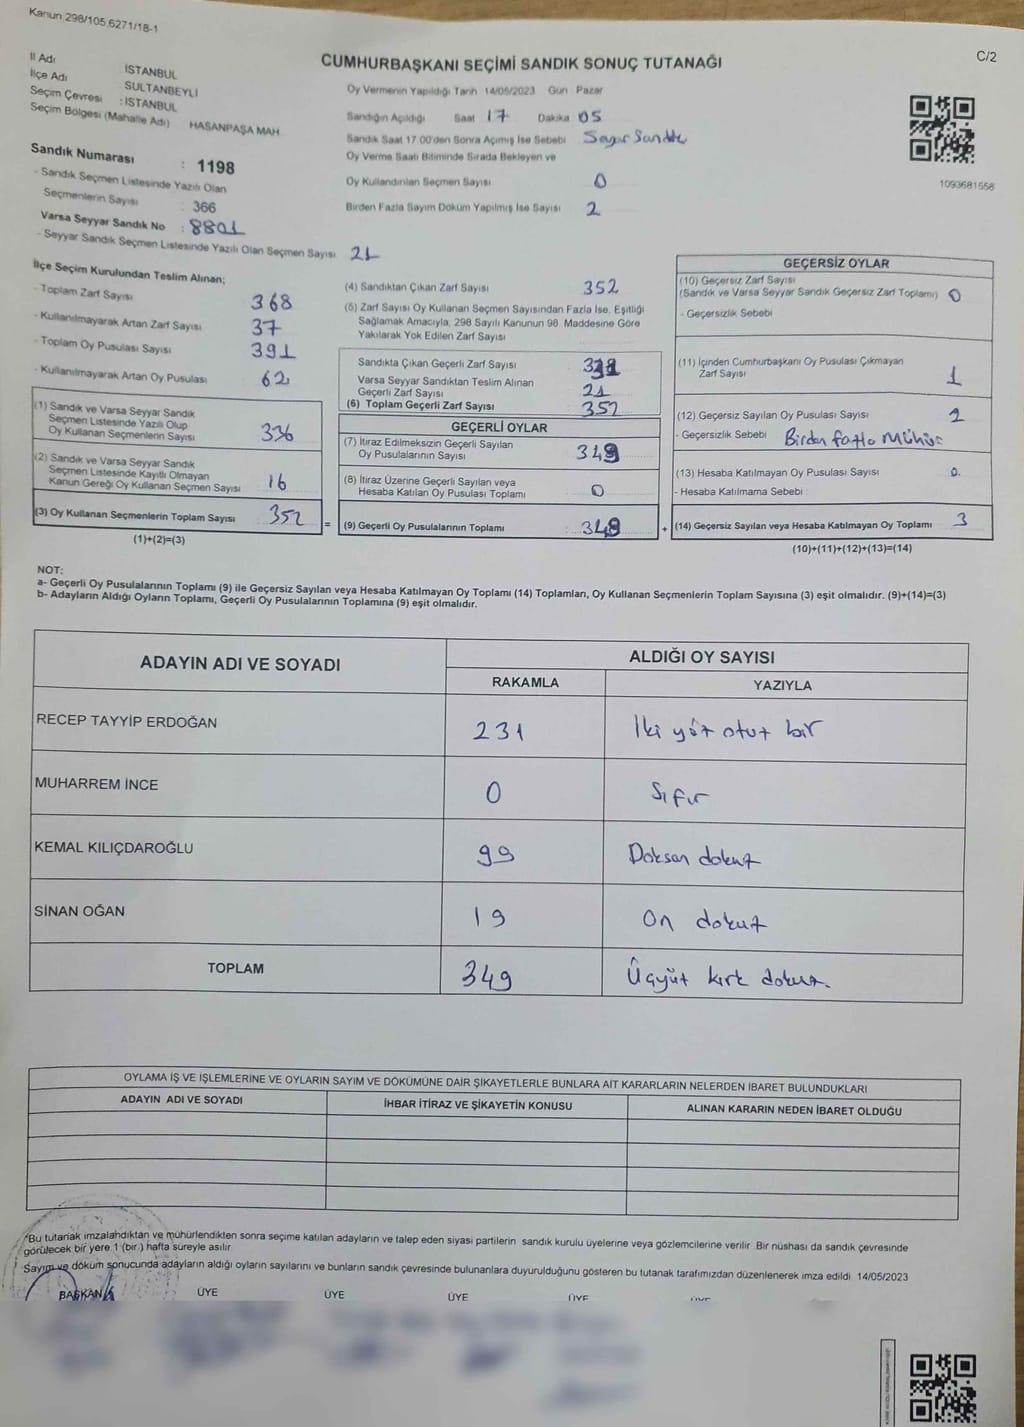 Kanun 298/105,6271/18-1
C/2
CUMHURBAŞKANI SEÇİMİ SANDIK SONUÇ TUTANAĞI
İl Adı İSTANBUL
İlçe Adı SULTANBEYLİ
Seçim Çevresi : İSTANBUL
Seçim Bölgesi (Mahalle Adı) HASANPAŞA MAH
Sandık Numarası : 1198
- Sandık Seçmen Listesinde Yazılı Olan
Seçmenlerin Sayısı : 366
Varsa Seyyar Sandık No : 8801
- Seyyar Sandık Seçmen Listesinde Yazılı Olan Seçmen Sayısı 21
Oy Vermenin Yapıldığı Tarih 14/05/2023 Gün Pazar
Sandığın Açıldığı Saat 17 Dakika 05
Sandık Saat 17.00'den Sonra Açımış İse Sebebi Seyyar Sandık
Oy Verme Saati Bitiminde Sırada Bekleyen ve
Oy Kullandırılan Seçmen Sayısı 0
Birden Fazla Sayım Döküm Yapılmış İse Sayısı 2
1093681558
İlçe Seçim Kurulundan Teslim Alınan;
- Toplam Zarf Sayısı 368
- Kullanılmayarak Artan Zarf Sayısı 37
- Toplam Oy Pusulası Sayısı 391
- Kullanılmayarak Artan Oy Pusulası 62
(1) Sandık ve Varsa Seyyar Sandık
Seçmen Listesinde Yazılı Olup
Oy Kullanan Seçmenlerin Sayısı 336
(2) Sandık ve Varsa Seyyar Sandık
Seçmen Listesinde Kayıtlı Olmayan
Kanun Gereği Oy Kullanan Seçmen Sayısı 16
(3) Oy Kullanan Seçmenlerin Toplam Sayısı 352
(1)+(2)=(3)
=
(4) Sandıktan Çıkan Zarf Sayısı 352
(5) Zarf Sayısı Oy Kullanan Seçmen Sayısından Fazla İse, Eşitliği
Sağlamak Amacıyla, 298 Sayılı Kanunun 98. Maddesine Göre
Yakılarak Yok Edilen Zarf Sayısı
Sandıkta Çıkan Geçerli Zarf Sayısı
Varsa Seyyar Sandıktan Teslim Alınan
Geçerli Zarf Sayısı 21
(6) Toplam Geçerli Zarf Sayısı 352
GEÇERLİ OYLAR
(7) İtiraz Edilmeksizin Geçerli Sayılan
Oy Pusulalarının Sayısı 349
(8) İtiraz Üzerine Geçerli Sayılan veya
Hesaba Katılan Oy Pusulası Toplamı 0
(9) Geçerli Oy Pusulalarının Toplamı 349
+
GEÇERSİZ OYLAR
(10) Geçersiz Zarf Sayısı
(Sandık ve Varsa Seyyar Sandık Geçersiz Zarf Toplamı) 0
- Geçersizlik Sebebi
(11) İçinden Cumhurbaşkanı Oy Pusulası Çıkmayan
Zarf Sayısı 1
(12) Geçersiz Sayılan Oy Pusulası Sayısı 2
- Geçersizlik Sebebi Birden fazla Mühür
(13) Hesaba Katılmayan Oy Pusulası Sayısı 0
- Hesaba Katılmama Sebebi :
(14) Geçersiz Sayılan veya Hesaba Katılmayan Oy Toplamı 3
(10)+(11)+(12)+(13)=(14)
NOT:
a- Geçerli Oy Pusulalarının Toplamı (9) ile Geçersiz Sayılan veya Hesaba Katılmayan Oy Toplamı (14) Toplamları, Oy Kullanan Seçmenlerin Toplam Sayısına (3) eşit olmalıdır. (9)+(14)=(3)
b- Adayların Aldığı Oyların Toplamı, Geçerli Oy Pusulalarının Toplamına (9) eşit olmalıdır.
ADAYIN ADI VE SOYADI
ALDIĞI OY SAYISI
RAKAMLA YAZIYLA
RECEP TAYYİP ERDOĞAN 231 İki yüz otuz bir
MUHARREM İNCE 0 Sıfır
KEMAL KILIÇDAROĞLU 99 Doksan dokuz
SİNAN OĞAN 19 On dokuz
TOPLAM 349 Üçyüz kırk dokuz.
OYLAMA İŞ VE İŞLEMLERİNE VE OYLARIN SAYIM VE DÖKÜMÜNE DAİR ŞİKAYETLERLE BUNLARA AİT KARARLARIN NELERDEN İBARET BULUNDUKLARI
ADAYIN ADI VE SOYADI İHBAR İTİRAZ VE ŞİKAYETİN KONUSU ALINAN KARARIN NEDEN İBARET OLDUĞU
*Bu tutanak imzalandıktan ve mühürlendikten sonra seçime katılan adayların ve talep eden siyasi partilerin sandık kurulu üyelerine veya gözlemcilerine verilir. Bir nüshası da sandık çevresinde
görülecek bir yere 1 (bir ) hafta süreyle asılır.
Sayım ve döküm sonucunda adayların aldığı oyların sayılarını ve bunların sandık çevresinde bulunanlara duyurulduğunu gösteren bu tutanak tarafımızdan düzenlenerek imza edildi. 14/05/2023
BAŞKAN ÜYE ÜYE ÜYE ÜYE ÜYE